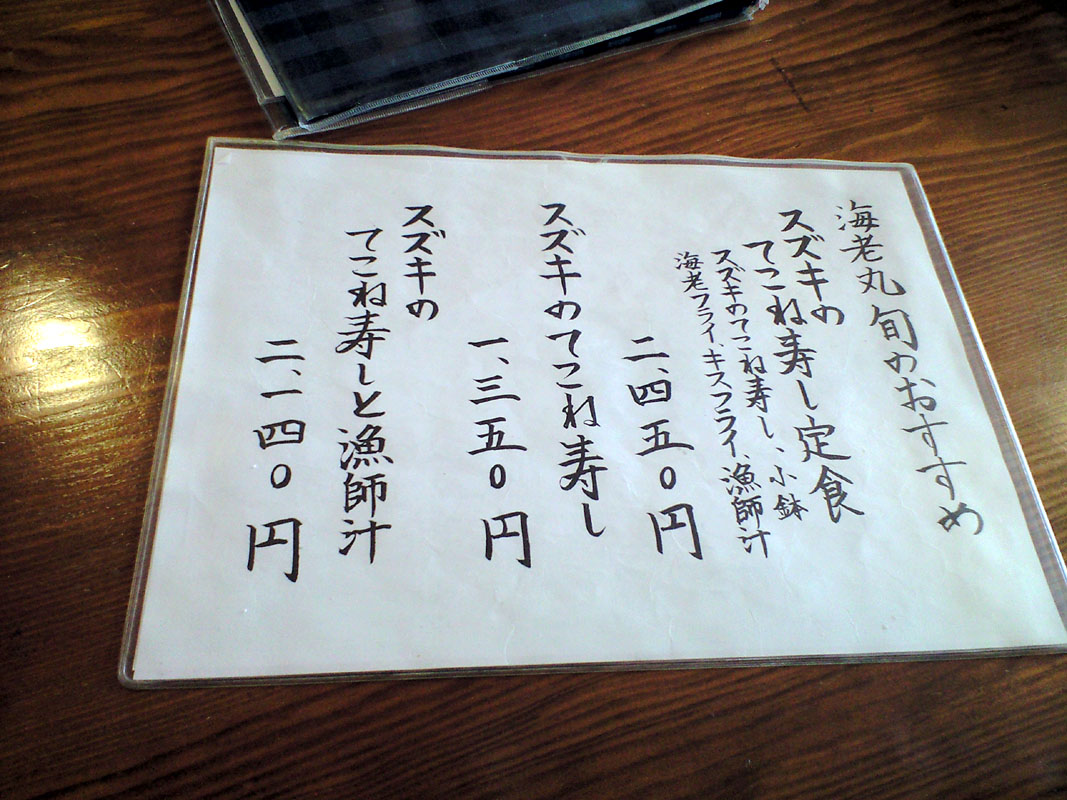 海老丸旬のおすすめ
スズキの
てこね寿し定食
スズキのてこね寿し、小鉢
海老フライ、キスフライ、漁師汁
二、四五〇円
スズキのてこね寿し
一、三五〇円
スズキの
てこね寿しと漁師汁
二、一四〇円